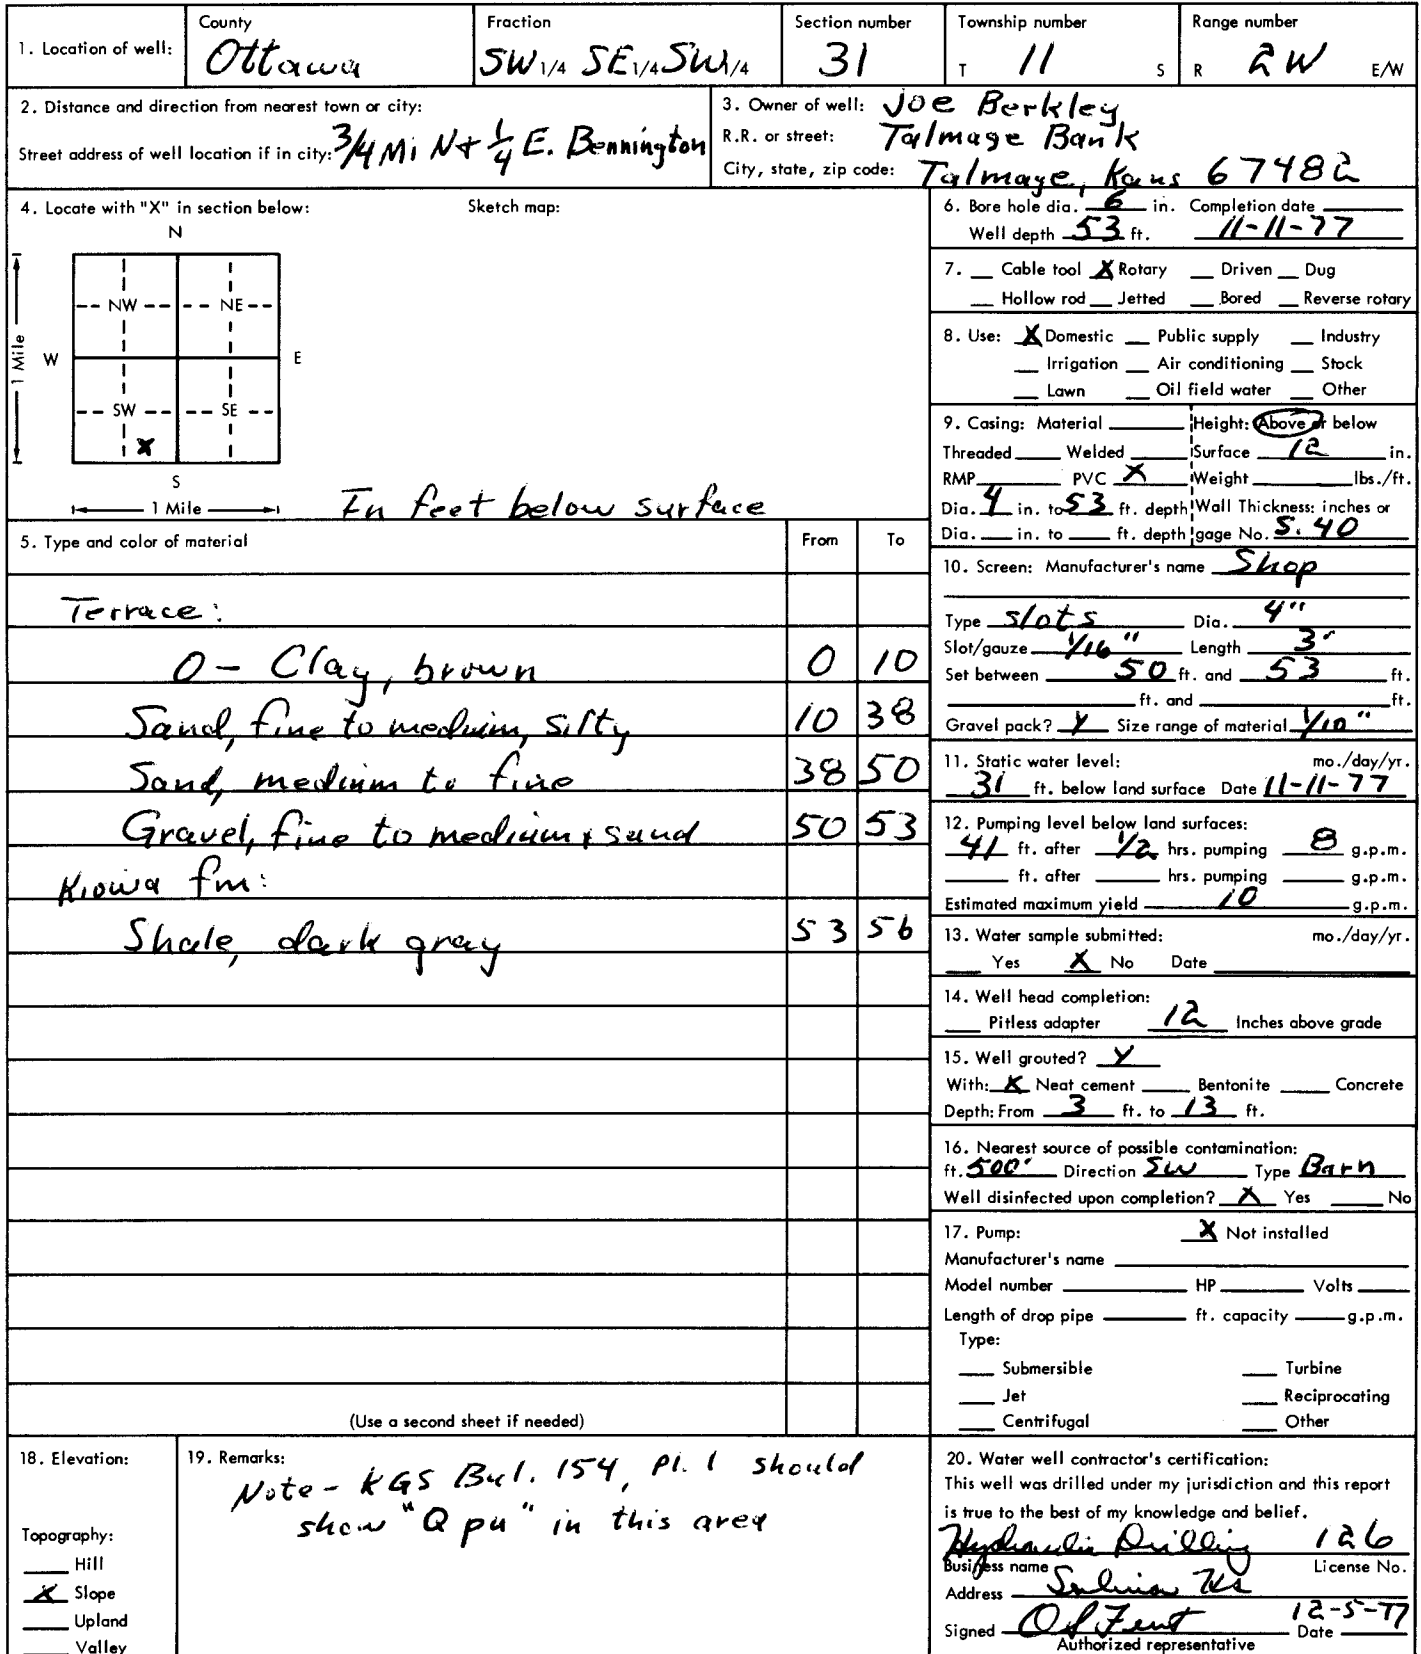 1. Location of well: County Ottawa Fraction SW 1/4 SE 1/4 SW 1/4 Section number 31 Township number T 11 S Range number R 2W E/W
2. Distance and direction from nearest town or city:
Street address of well location if in city: 3/4 Mi N + 1/4 E. Bennington
3. Owner of well: Joe Berkley
R.R. or street: Talmage Bank
City, state, zip code: Talmage, Kans 67482
4. Locate with "X" in section below: Sketch map:
N
NW NE
W E
1 Mile
SW SE
X
S
1 Mile
In feet below surface
5. Type and color of material From To
Terrace:
0 - Clay, brown 0 10
Sand, fine to medium, silty 10 38
Sand, medium to fine 38 50
Gravel, fine to medium + sand 50 53
Kiowa fm:
Shale, dark gray 53 56
(Use a second sheet if needed)
6. Bore hole dia. 6 in. Completion date
Well depth 53 ft. 11-11-77
7. Cable tool X Rotary Driven Dug
Hollow rod Jetted Bored Reverse rotary
8. Use: X Domestic Public supply Industry
Irrigation Air conditioning Stock
Lawn Oil field water Other
9. Casing: Material Height: Above or below
Threaded Welded Surface 12 in.
RMP PVC X Weight lbs./ft.
Dia. 4 in. to 53 ft. depth Wall Thickness: inches or
Dia. in. to ft. depth gage No. S. 40
10. Screen: Manufacturer's name Shop
Type slots Dia. 4"
Slot/gauze 1/16" Length 3'
Set between 50 ft. and 53 ft.
ft. and ft.
Gravel pack? Y Size range of material 1/10"
11. Static water level: mo./day/yr.
31 ft. below land surface Date 11-11-77
12. Pumping level below land surfaces:
41 ft. after 1/2 hrs. pumping 8 g.p.m.
ft. after hrs. pumping g.p.m.
Estimated maximum yield 10 g.p.m.
13. Water sample submitted: mo./day/yr.
Yes X No Date
14. Well head completion:
Pitless adapter 12 Inches above grade
15. Well grouted? Y
With: X Neat cement Bentonite Concrete
Depth: From 3 ft. to 13 ft.
16. Nearest source of possible contamination:
ft. 500' Direction SW Type Barn
Well disinfected upon completion? X Yes No
17. Pump: X Not installed
Manufacturer's name
Model number HP Volts
Length of drop pipe ft. capacity g.p.m.
Type:
Submersible Turbine
Jet Reciprocating
Centrifugal Other
18. Elevation:
Topography:
Hill
X Slope
Upland
Valley
19. Remarks:
Note - KGS Bul. 154, Pl. 1 should
show "Qpu" in this area
20. Water well contractor's certification:
This well was drilled under my jurisdiction and this report
is true to the best of my knowledge and belief.
Hydraulic Drilling 126
Business name License No.
Address Salina Ks
Signed O S Fent Date 12-5-77
Authorized representative